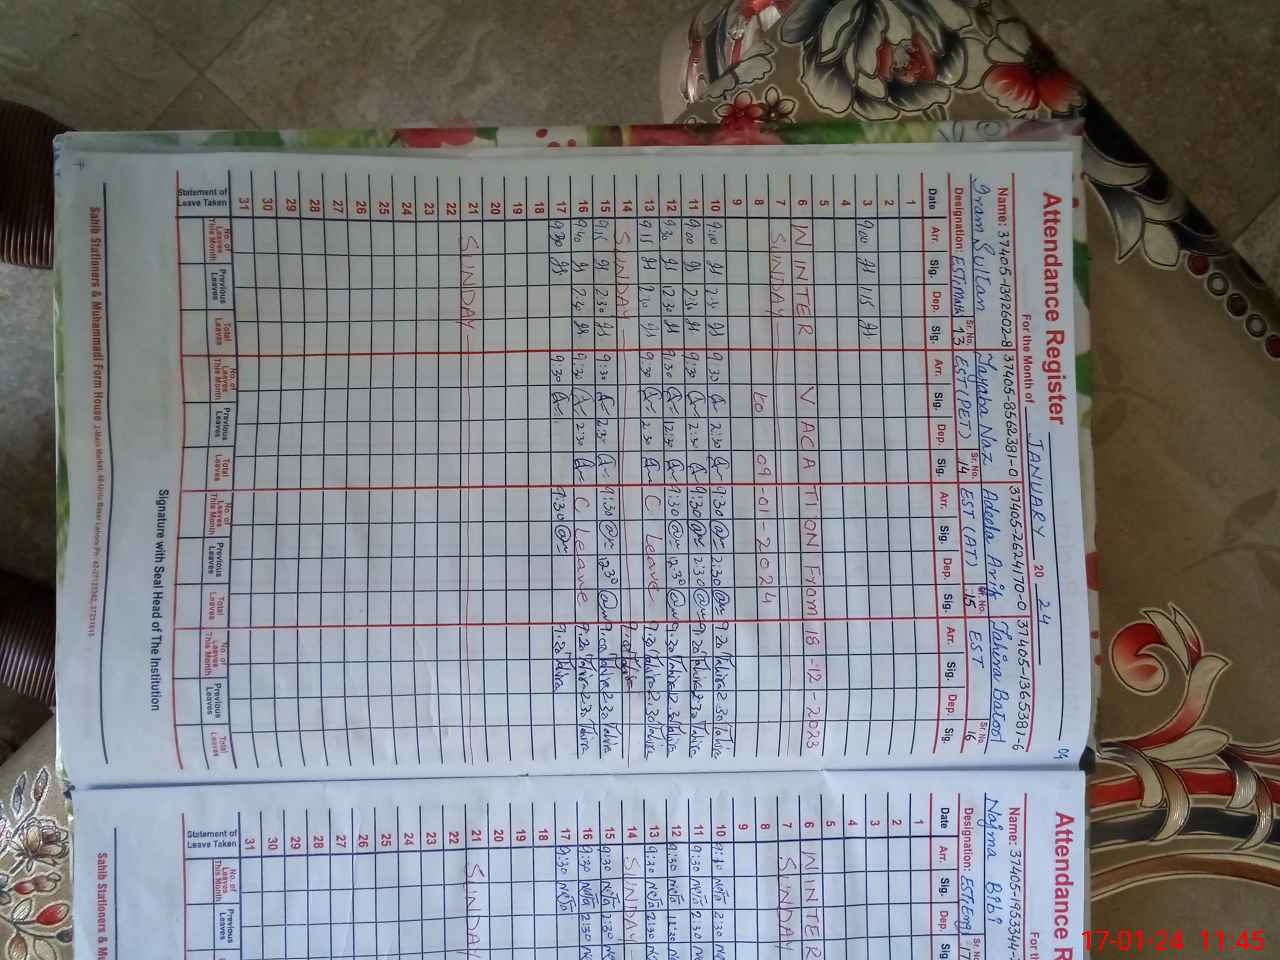 Attendance Register
For the Month of JANUARY 20 24
04
Name: 37405-1392602-8 37405-8562381-0 37405-2624170-0 37405-1365381-6
Iram Sultan Tayaba Naz Adeela Arif Tahira Batool
Designation: EST(Math) Sr. No. 13 EST(PET) Sr. No. 14 EST (AT) Sr. No. 15 EST Sr. No. 16
Date Arr. Sig. Dep. Sig. Arr. Sig. Dep. Sig. Arr. Sig. Dep. Sig. Arr. Sig. Dep. Sig.
1
2
3 9:00 1:15
4
5
6 WINTER VACATION From 18-12-2023
7 SUNDAY
8 to 09-01-2024
9
10 9:00 2:30 9:30 2:30 9:30 2:30 9:20 Tahira 2:30 Tahira
11 9:00 2:30 9:30 2:30 9:30 2:30 9:20 Tahira 2:30 Tahira
12 9:30 12:30 9:30 12:30 9:30 12:30 9:20 Tahira 12:30 Tahira
13 9:15 2:30 9:30 2:30 C Leave 9:20 Tahira 2:30 Tahira
14 SUNDAY
15 9:15 2:30 9:30 2:30 9:30 12:30 9:00 Tahira 2:30 Tahira
16 9:40 2:40 9:30 2:30 C Leave 9:20 Tahira 2:30 Tahira
17 9:30 9:30 9:30 9:20 Tahira
18
19
20
21 SUNDAY
22
23
24
25
26
27
28
29
30
31
Statement of Leave Taken No. of Leaves This Month Previous Leaves Total Leaves No. of Leaves This Month Previous Leaves Total Leaves No. of Leaves This Month Previous Leaves Total Leaves No. of Leaves This Month Previous Leaves Total Leaves
Signature with Seal Head of The Institution
Sahib Stationers & Muhammadi Form House
Attendance R
For th
Name: 37405-1953344-
Najma Bibi
Designation: EST(Eng) Sr. No. 17
Date Arr. Sig. Dep. Sig
1
2
3
4
5
6 WINTER
7 SUNDAY
8
9
10 9:30 2:30
11 9:30 2:30
12 9:30 12:30
13 9:30 2:30
14 SUNDAY
15 9:30 2:30
16 9:30 2:30
17 9:30
18
19
20
21 SUNDAY
22
23
24
25
26
27
28
29
30
31
Statement of Leave Taken No. of Leaves This Month Previous Leaves
Sahib Stationers & M
17-01-24 11:45